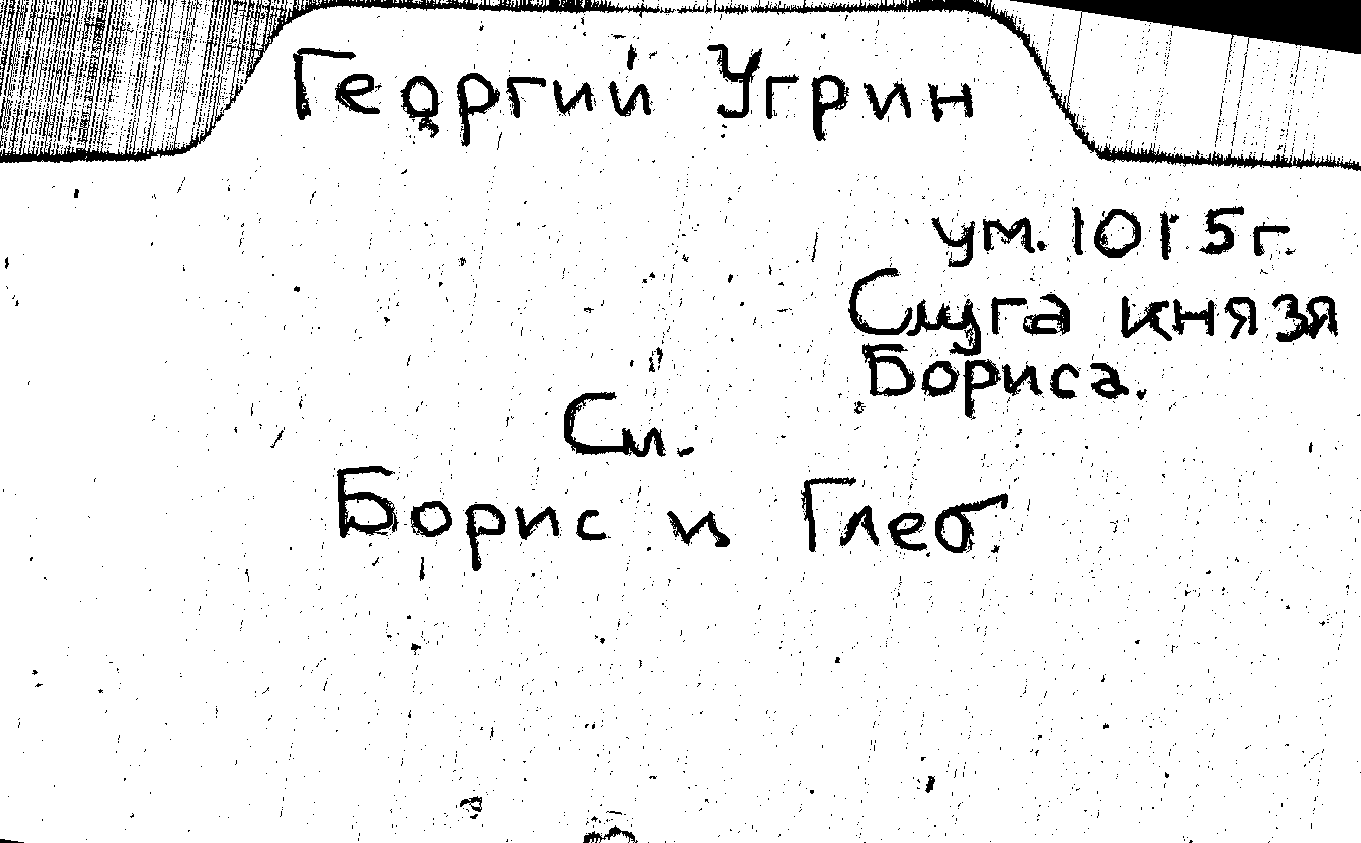 Георгий Угрин
ум. 1015 г.
Слуга князя
Бориса.
См.
Борис и Глеб